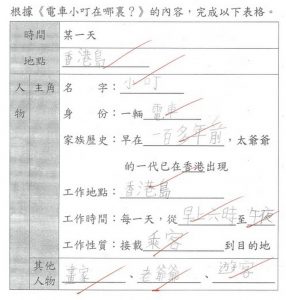 根據《電車小叮在哪裏？》的內容，完成以下表格。
時間 某一天
地點 香港島
人物 主角 名字：小叮
身份：一輛電車
家族歷史：早在一百多年前，太爺爺
的一代已在香港出現
工作地點：香港島
工作時間：每一天，從早上六時至午夜
工作性質：接載乘客到目的地
其他人物 畫家、老爺爺、遊客